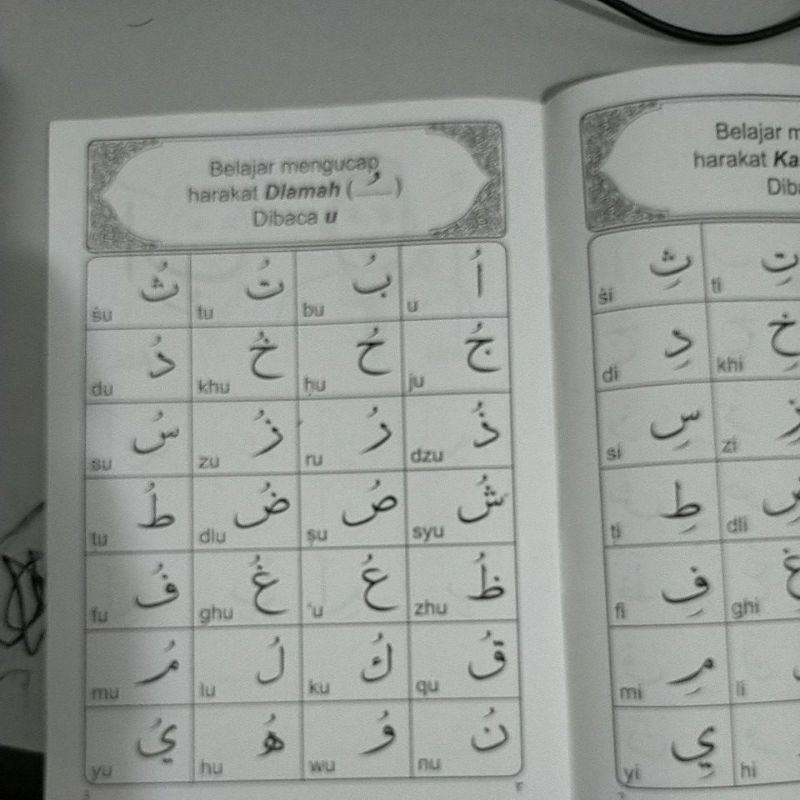 Belajar mengucap
harakat Dlamah ( ـُ )
Dibaca u
اُ u بُ bu تُ tu ثُ ṡu
جُ ju حُ ḥu خُ khu دُ du
ذُ dzu رُ ru زُ zu سُ su
شُ syu صُ ṣu ضُ dlu طُ ṭu
ظُ zhu عُ 'u غُ ghu فُ fu
قُ qu كُ ku لُ lu مُ mu
نُ nu وُ wu هُ hu يُ yu
Belajar
harakat
تِ ti ثِ ṡi
خِ khi دِ di
زِ zi سِ si
ضِ dli طِ ṭi
غِ ghi فِ fi
li مِ mi
hi يِ yi